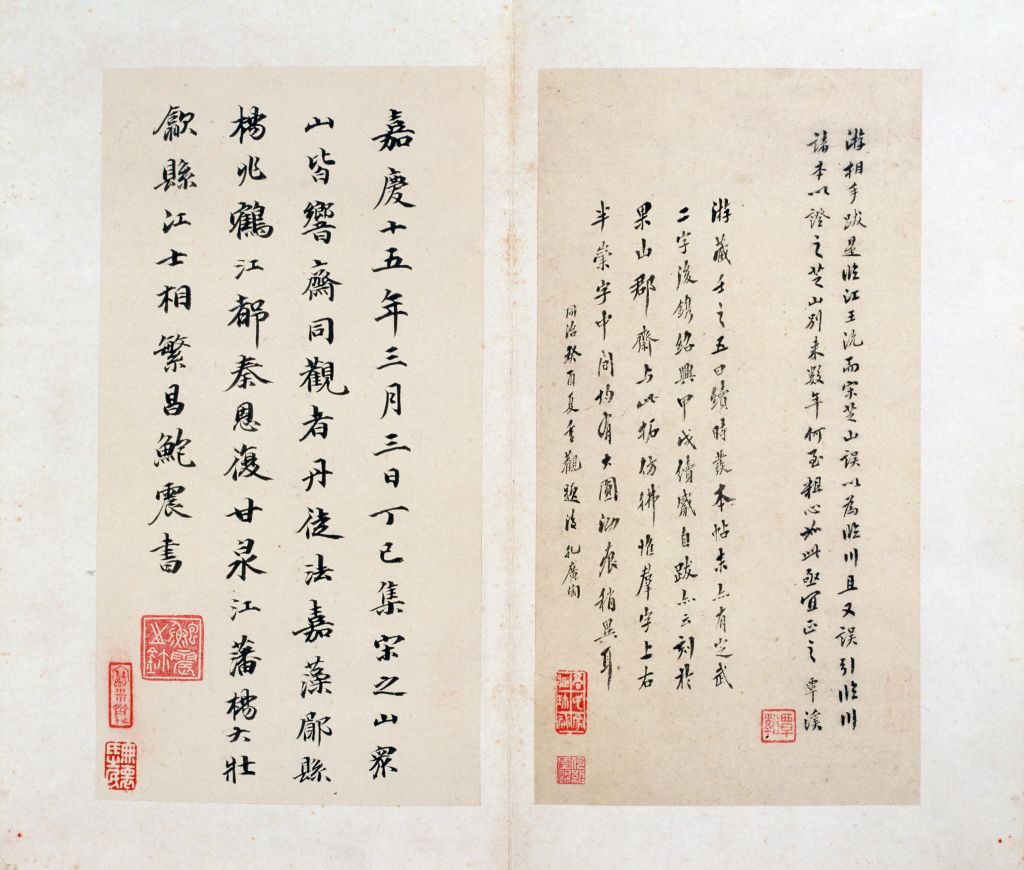 游相手跋是臨江王沇而宋芝山誤以為臨川且又誤引臨川
諸本以證之芝山別来数年何至粗心如此亟宜正之 覃溪
游藏壬之五曰續時發本帖末亦有定武
二字後鐫紹興甲戌續歲自跋亦云刻於
果山郡齋与此拓彷彿惟羣字上右
半崇字中間均有大圓泐痕稍異耳
同治癸酉夏重觀題後孔廣陶
覃谿
嘉慶十五年三月三日丁已集宋之山眾
山皆響齋同觀者丹徒法嘉藻鄖縣
楊兆鶴江都秦恩復甘泉江藩楊大壯
歙縣江士相繁昌鮑震書